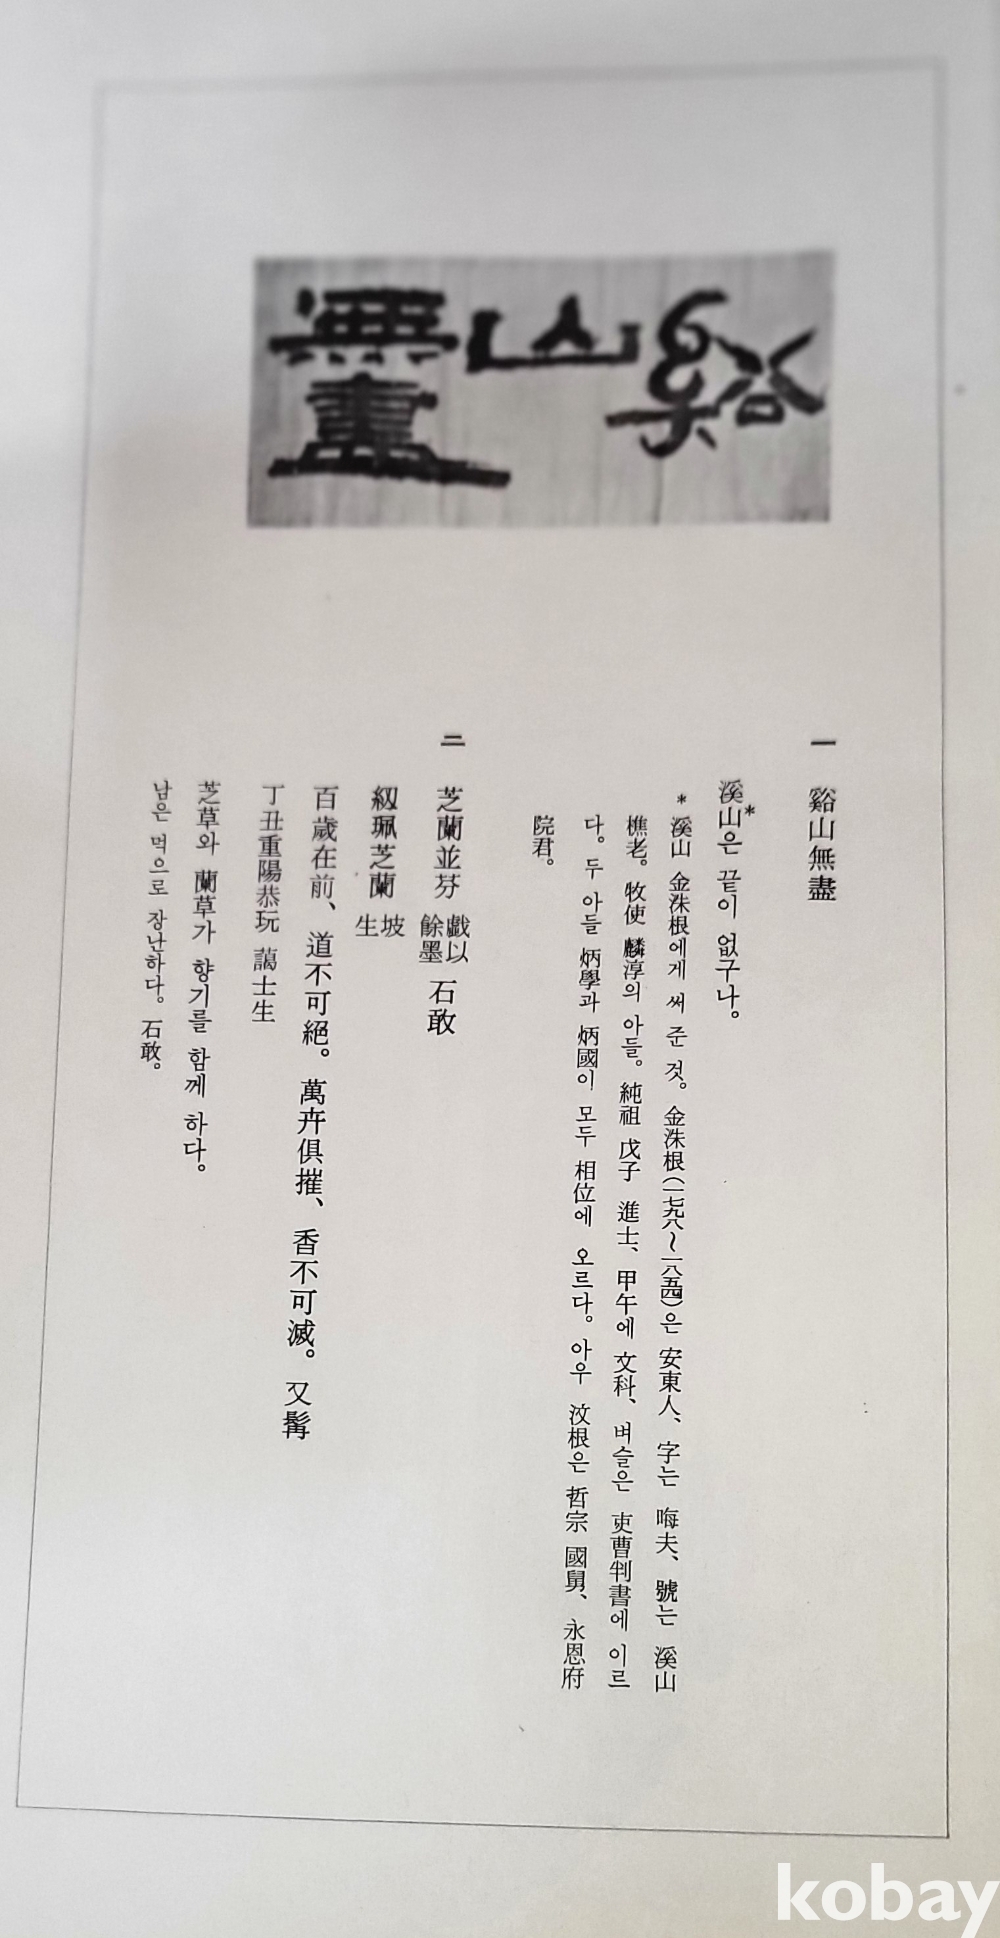 谿山無盡
一 谿山無盡
溪山*은 끝이 없구나。
* 溪山 金洙根에게 써 준 것。金洙根(一七九八～一八五四)은 安東人、字는 晦夫、號는 溪山
樵老。牧使 麟淳의 아들。純祖 戊子 進士、甲午에 文科、벼슬은 吏曹判書에 이르
다。두 아들 炳學과 炳國이 모두 相位에 오르다。아우 汶根은 哲宗 國舅、永恩府
院君。
二 芝蘭並芬 戱以餘墨 石敢
紉珮芝蘭 坡生
百歲在前、道不可絕。萬卉俱摧、香不可滅。又髯
丁丑重陽恭玩 藹士生
芝草와 蘭草가 향기를 함께 하다。
남은 먹으로 장난하다。石敢。
kobay